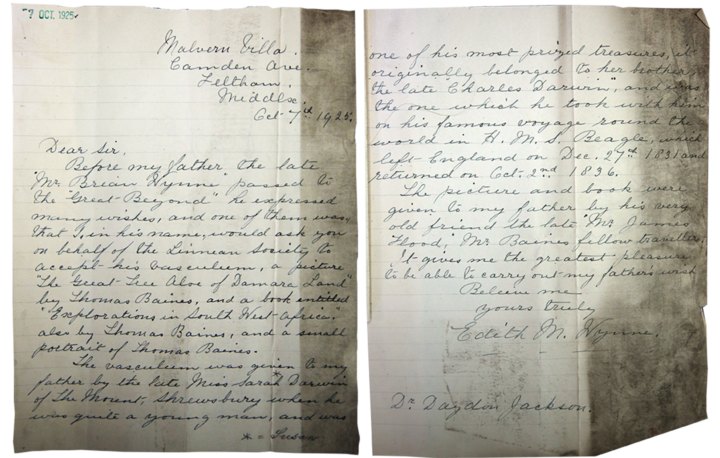 7 OCT. 1925
Malvern Villa.
Camden Ave.
Feltham.
Middlx.
Oct. 7th 1925.
Dear Sir,
Before my father the late
"Mr. Brian Wynne" passed to
the Great Beyond" he expressed
many wishes, and one of them was
that I, in his name, would ask you
on behalf of the Linnean Society to
accept his vasculum, a picture
"The Great Tree Aloe of Damara Land"
by Thomas Baines, and a book entitled
"Explorations in South West Africa"
also by Thomas Baines, and a small
portrait of Thomas Baines.
The vasculum was given to my
father by the late Miss Sarah* Darwin
of The Mount, Shrewsbury when he
was quite a young man, and was
* = Susan
one of his most prized treasures, it
originally belonged to her brother
the late "Charles Darwin", and was
the one which he took with him
on his famous voyage round the
world in H. M. S. Beagle, which
left England on Dec. 27th 1831 and
returned on Oct. 2nd 1836.
The picture and book were
given to my father by his very
old friend the late "Mr. James
Flood," Mr. Baines fellow traveller.
It gives me the greatest pleasure
to be able to carry out my father's wish
Believe me
yours truly
Edith M. Wynne.
Dr. Daydon Jackson.